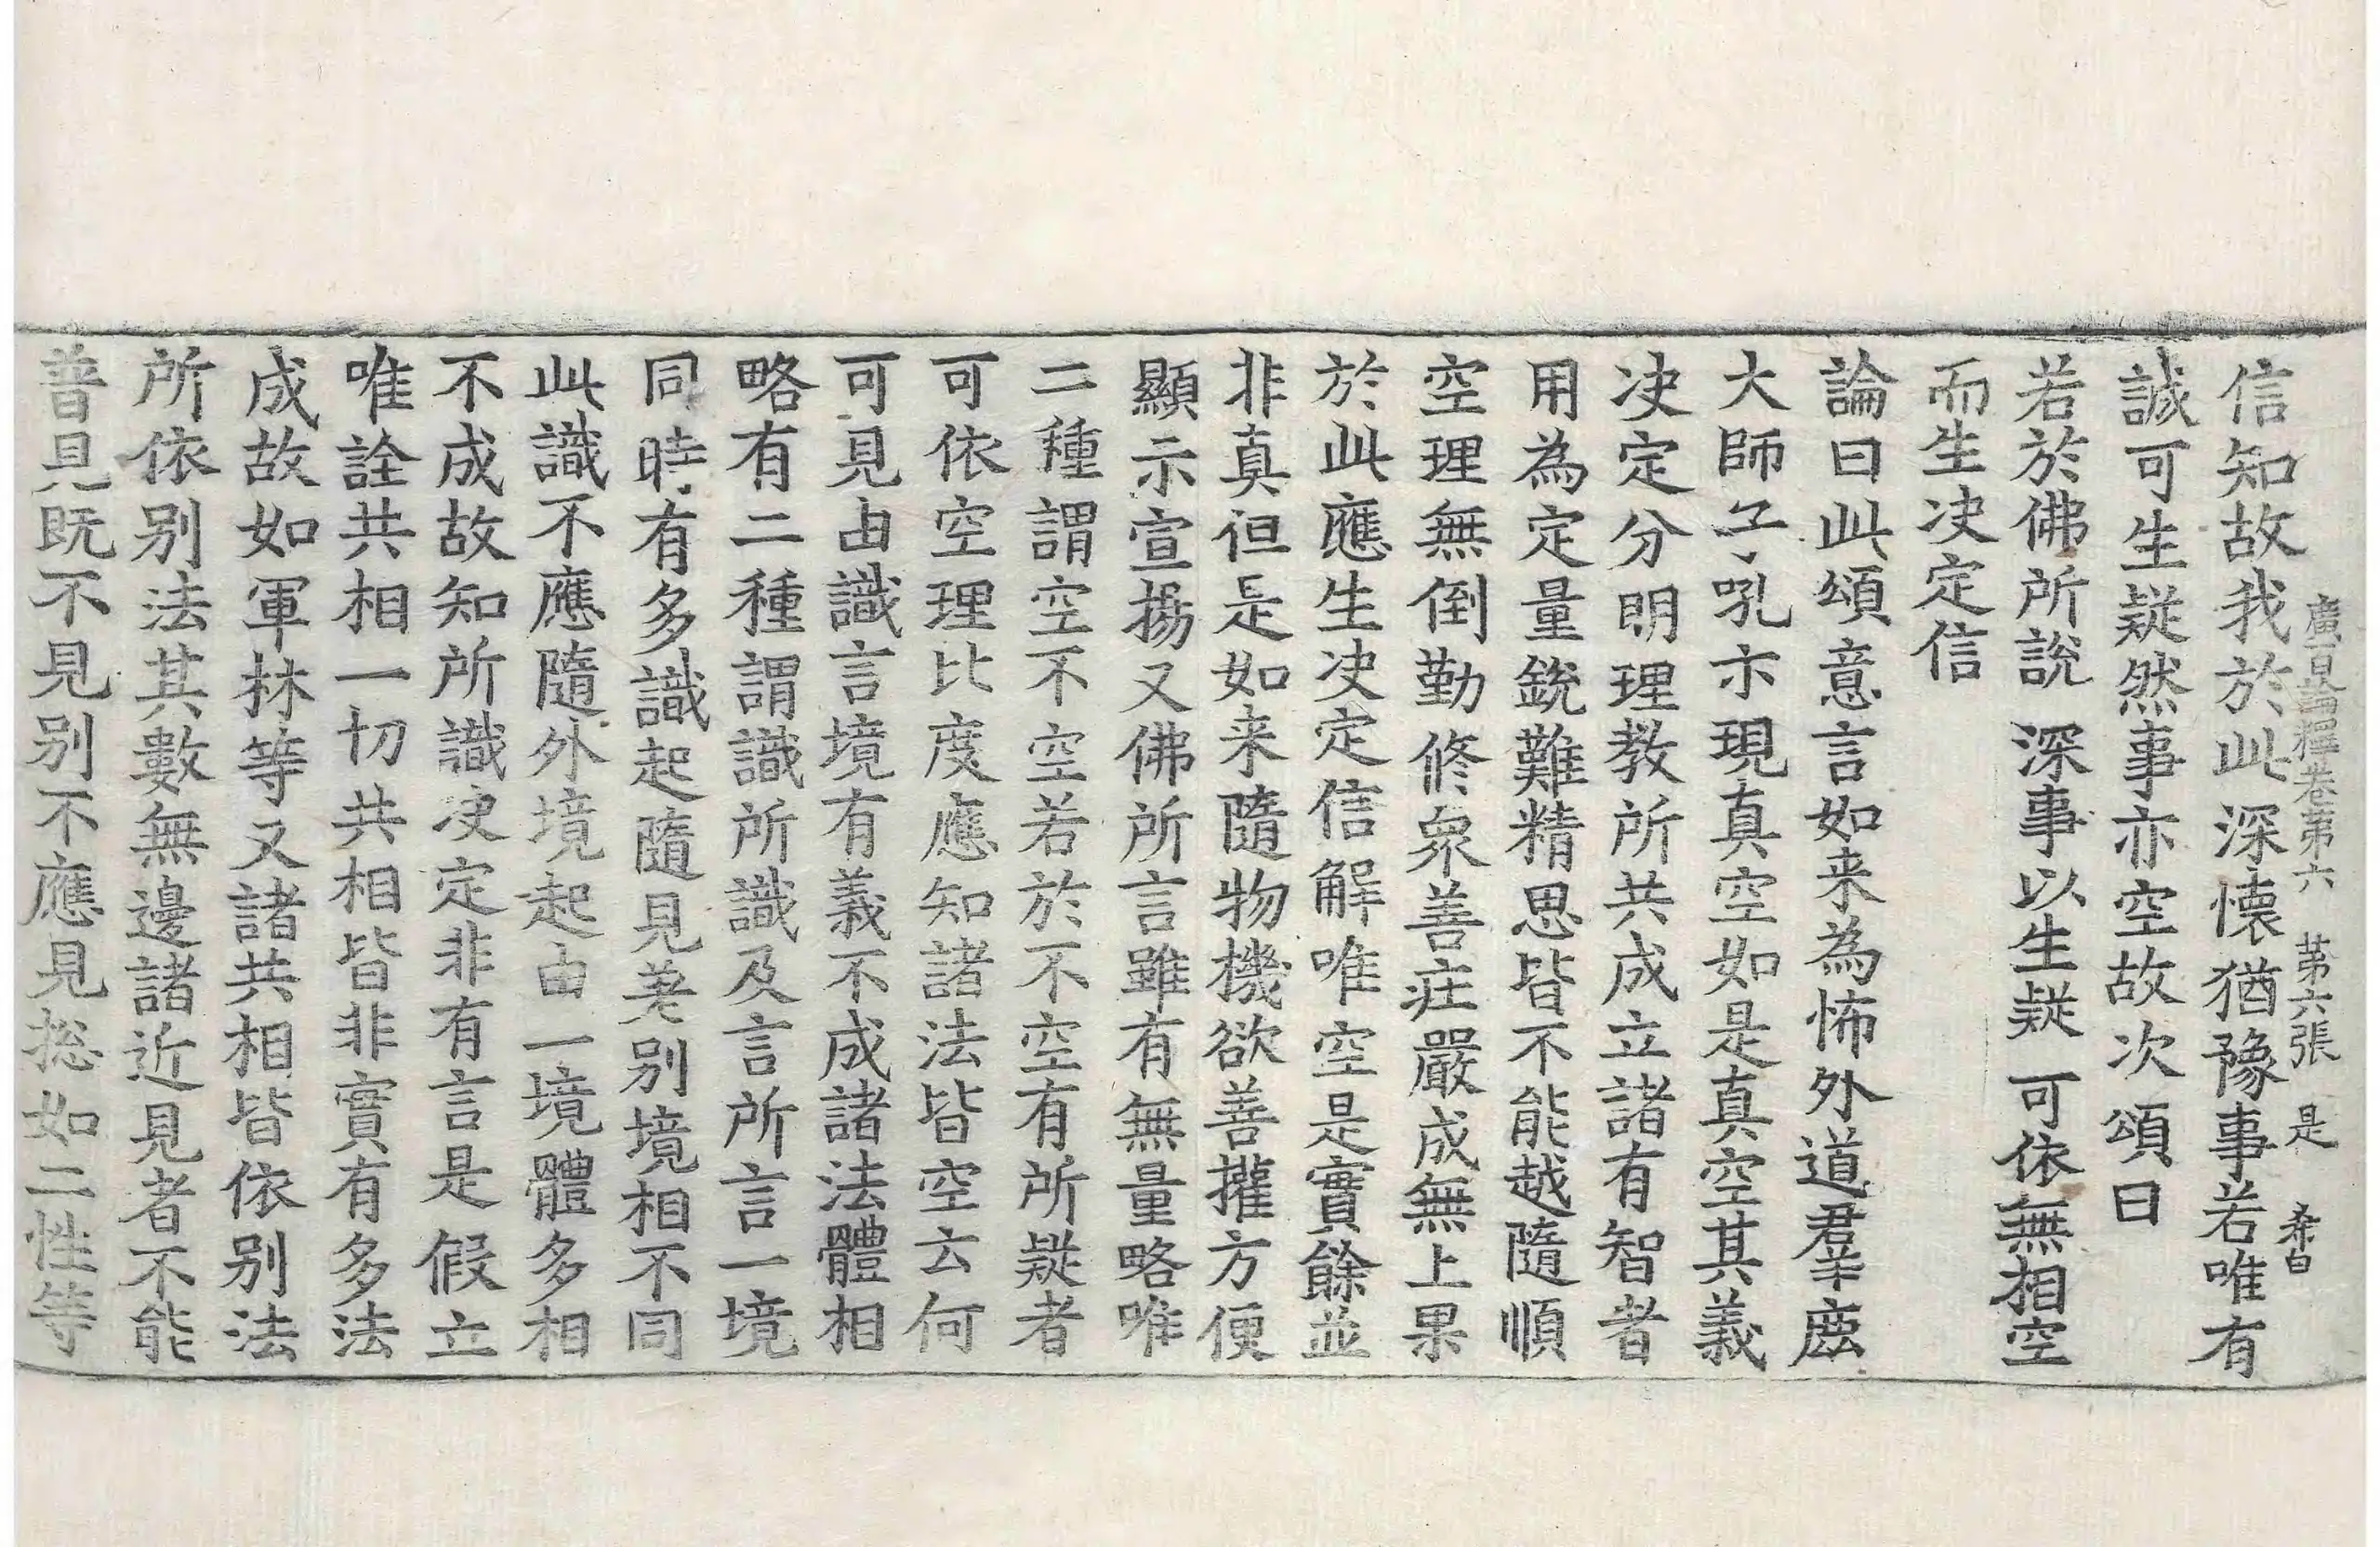 信知故我於此深懷猶豫事若唯有
廣百論釋卷第六　第六張　是
誠可生疑然事亦空故次頌曰
若於佛所說　深事以生疑　可依無相空
而生决定信
論曰此頌意言如来為怖外道羣鹿
大師子吼尓現真空如是真空其義
决定分明理教所共成立諸有智者
用為定量銳難精思皆不能越隨順
空理無倒勤修衆善莊嚴成無上果
於此應生决定信解唯空是實餘並
非真但是如来隨物機欲善權方便
顯示宣揚又佛所言雖有無量略唯
二種謂空不空若於不空有所疑者
可依空理比度應知諸法皆空云何
可見由識言境有義不成諸法體相
略有二種謂識所識及言所言一境
同時有多識起隨見差别境相不同
此識不應隨外境起由一境體多相
不成故知所識决定非有言是假立
唯詮共相一切共相皆非實有多法
成故如軍林等又諸共相皆依别法
所依别法其數無邊諸近見者不能
普見既不見别不應見捴如二性等